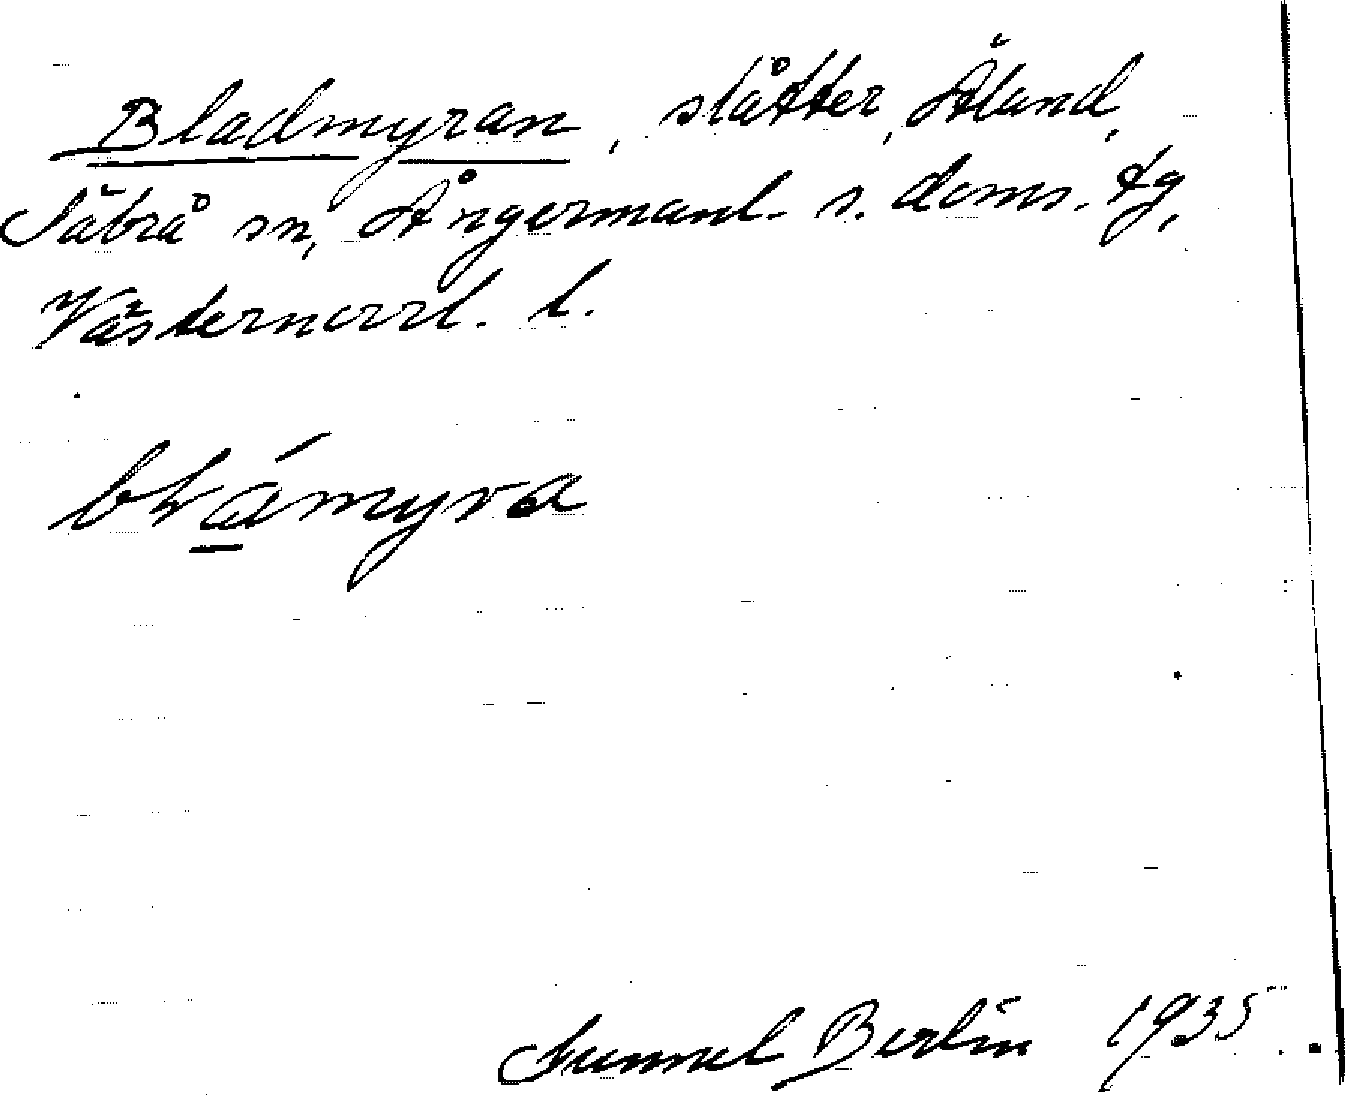 Bladmyran, slåtter, Äland,
Säbrå sn, Ångermanl. s. doms. tg,
Västernorrl. l.
Gunnel Berlin 1935.